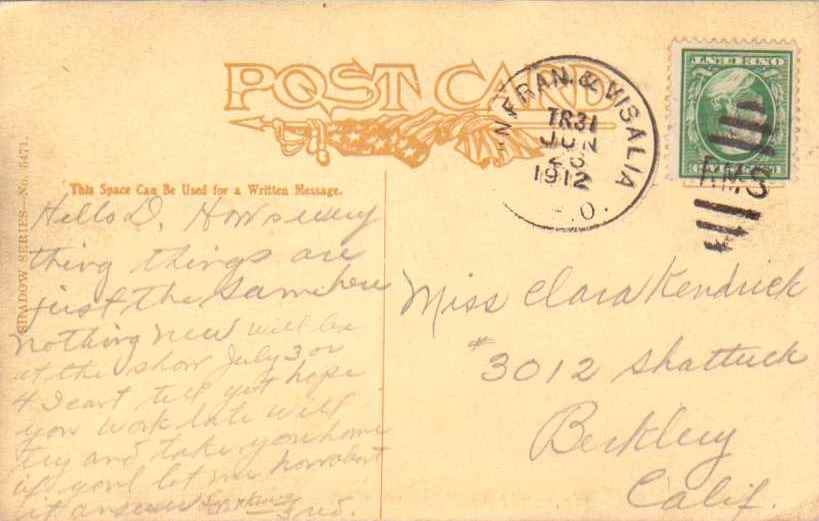 POST CARD
N FRAN. & VISALIA
TR31
JUN
26
1912
R.P.O.
RMS
This Space Can Be Used for a Written Message.
SHADOW SERIES—No. 5471.
Hello D. Hows every
thing things are
just the same here
nothing new will be
at the show July 3 or
4 I cant tell yet hope
you work late will
try and take you home
if youl let me how about
it answer
Fred.
Miss Clara Kendrick
# 3012 Shattuck
Berkley
Calif.